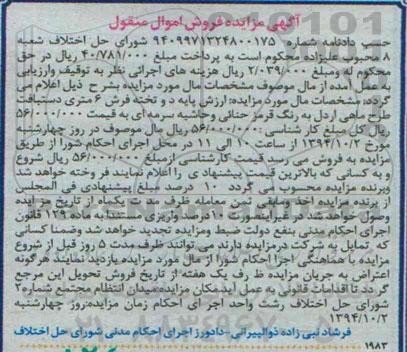 آگهی مزایده فروش اموال منقول
حسب دادنامه شماره ۹۴۰۹۹۷۱۲۲۴۸۰۰۱۷۵ شورای حل اختلاف شعبه
۸ محبوب علیزاده محکوم است به پرداخت مبلغ ۴۰/۷۸۱/۰۰۰ ریال در حق
محکوم له ومبلغ ۲/۰۳۹/۰۰۰ ریال هزینه های اجرائی نظر به توقیف وارزیابی
به عمل آمده از مال موصوف مشخصات مال مورد مزایده بشرح ذیل اعلام می
گردد: مشخصات مال مورد مزایده: ارزش پایه دو تخته فرش ۶ متری دستبافت
طرح ماهی اردل به رنگ قرمز حنائی وحاشیه سرمه ای به قیمت ۵۶/۰۰۰/۰۰۰
ریال کل مبلغ کارشناسی: ۵۶/۰۰۰/۰۰۰ ریال مال موصوف در روز چهارشنبه
مورخ ۱۳۹۴/۱۰/۲ از ساعت ۱۰ الی ۱۱ در محل اجرای احکام شورا از طریق
مزایده به فروش می رسد قیمت کارشناسی ازمبلغ ۵۶/۰۰۰/۰۰۰ ریال شروع
و به کسانی که بالاترین قیمت پیشنهادی را اعلام نمایند فروخته خواهد شد
وبرنده مزایده محسوب می گردد ۱۰ درصد مبلغ پیشنهادی فی المجلس
از برنده مزایده اخذ ومابقی ثمن معامله ظرف مدت یکماه از تاریخ مزایده
وصول خواهد شد در غیراینصورت ۱۰درصد واریزی مستندا به ماده ۱۲۹ قانون
اجرای احکام مدنی بنفع دولت ضبط ومزایده تجدید خواهد شد وضمنا کسانی
که تمایل به شرکت درمزایده دارند می توانند ظرف مدت ۵ روز قبل از شروع
مزایده با هماهنگی اجرا احکام شورا از مال مورد مزایده بازدید نمایند هرگونه
اعتراض به جریان مزایده ظرف یک هفته از تاریخ فروش تحویل این مرجع
گردد تا اقدامات قانونی به عمل آید مکان مزایده: میدان انتظام مجتمع شماره۲
شورای حل اختلاف رشت واحد اجرای احکام زمان مزایده: روز چهارشنبه
۱۳۹۴/۱۰/۲
فرشاد نبی زاده ذوالپیرانی-دادورز اجرای احکام مدنی شورای حل اختلاف
۱۹۸۳